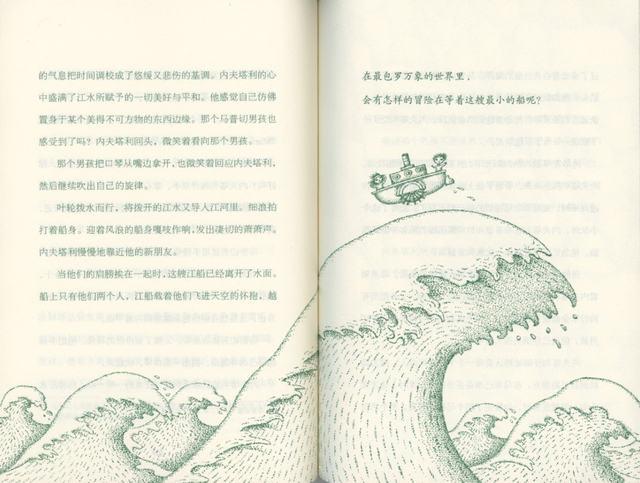 的气息把时间调校成了悠缓又悲伤的基调。内夫塔利的心
中盛满了江水所赋予的一切美好与平和。他感觉自己仿佛
置身于某个美得不可方物的东西边缘。那个马普切男孩也
感受到了吗？内夫塔利回头，微笑着看向那个男孩。
那个男孩把口琴从嘴边拿开，也微笑着回应内夫塔利，
然后继续吹出自己的旋律。
叶轮拨水而行，将拨开的江水又导入江河里。细浪拍
打着船身。迎着风浪的船身嘎吱作响，发出凄切的萧萧声。
内夫塔利慢慢地靠近他的新朋友。
当他们的肩膀挨在一起时，这艘江船已经离开了水面。
船上只有他们两个人，江船载着他们飞进天空的怀抱，越
在最包罗万象的世界里，
会有怎样的冒险在等着这艘最小的船呢？